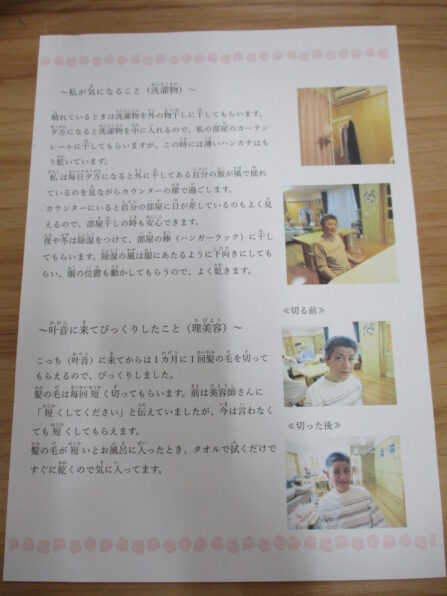 ～私が気になること（洗濯物）～
晴れているときは洗濯物を外の物干しに干してもらいます。
夕方になると洗濯物を中に入れるので、私の部屋のカーテン
レールに干してもらいますが、この時には薄いハンカチはも
う乾いています。
私は毎日夕方になると外に干してある自分の服が風で揺れ
ているのを見ながらカウンターの席で過ごします。
カウンターにいると自分の部屋に日が差しているのもよく見
えるので、部屋干しの時も安心できます。
夜や冬は除湿をつけて、部屋の棒（ハンガーラック）に干し
てもらいます。除湿の風は服にあたるように下向きにしても
らい、服の位置も動かしてもらうので、よく乾きます。
～叶音に来てびっくりしたこと（理美容）～
こっち（叶音）に来てからは１カ月に１回髪の毛を切って
もらえるので、びっくりしました。
髪の毛は毎回短く切ってもらいます。前は美容師さんに
「短くしてください」と伝えていましたが、今は言わなく
ても短くしてもらえます。
髪の毛が短いとお風呂に入ったとき、タオルで拭くだけで
すぐに乾くので気に入ってます。
≪切る前≫
≪切った後≫